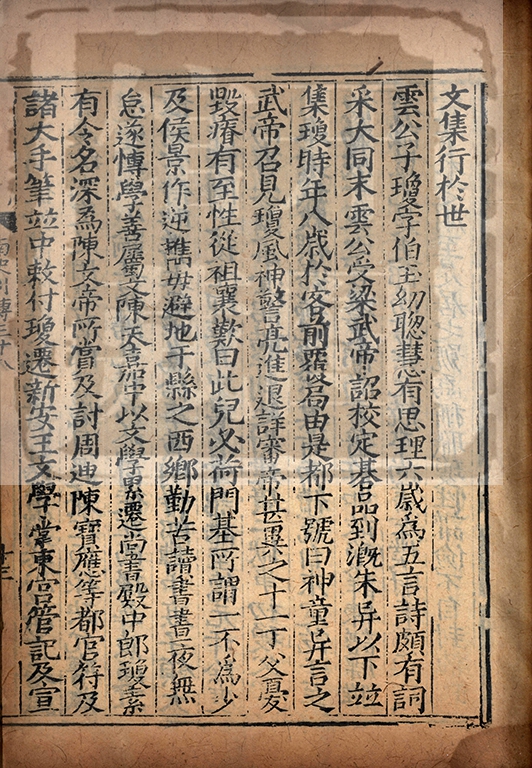 文集行於世
雲公子瓊字伯玉幼聰慧有思理六歲為五言詩頗有詞
采大同末雲公受梁武帝詔校定碁品到溉朱异以下並
集瓊時年八歲於客前覆局由是都下號曰神童异言之
武帝召見瓊風神警亮進退詳審帝甚異之十一丁父憂
毀瘠有至性從祖襄歎曰此兒必荷門基所謂一不為少
及侯景作逆攜母避地于縣之西鄉勤苦讀書晝夜無
怠遂博學善屬文陳天嘉中以文學累遷尚書殿中郎瓊素
有令名深為陳文帝所賞及討周迪陳寶應等都官符及
諸大手筆並中敕付瓊遷新安王文學掌東宮管記及宣
南史列傳三十八
十三